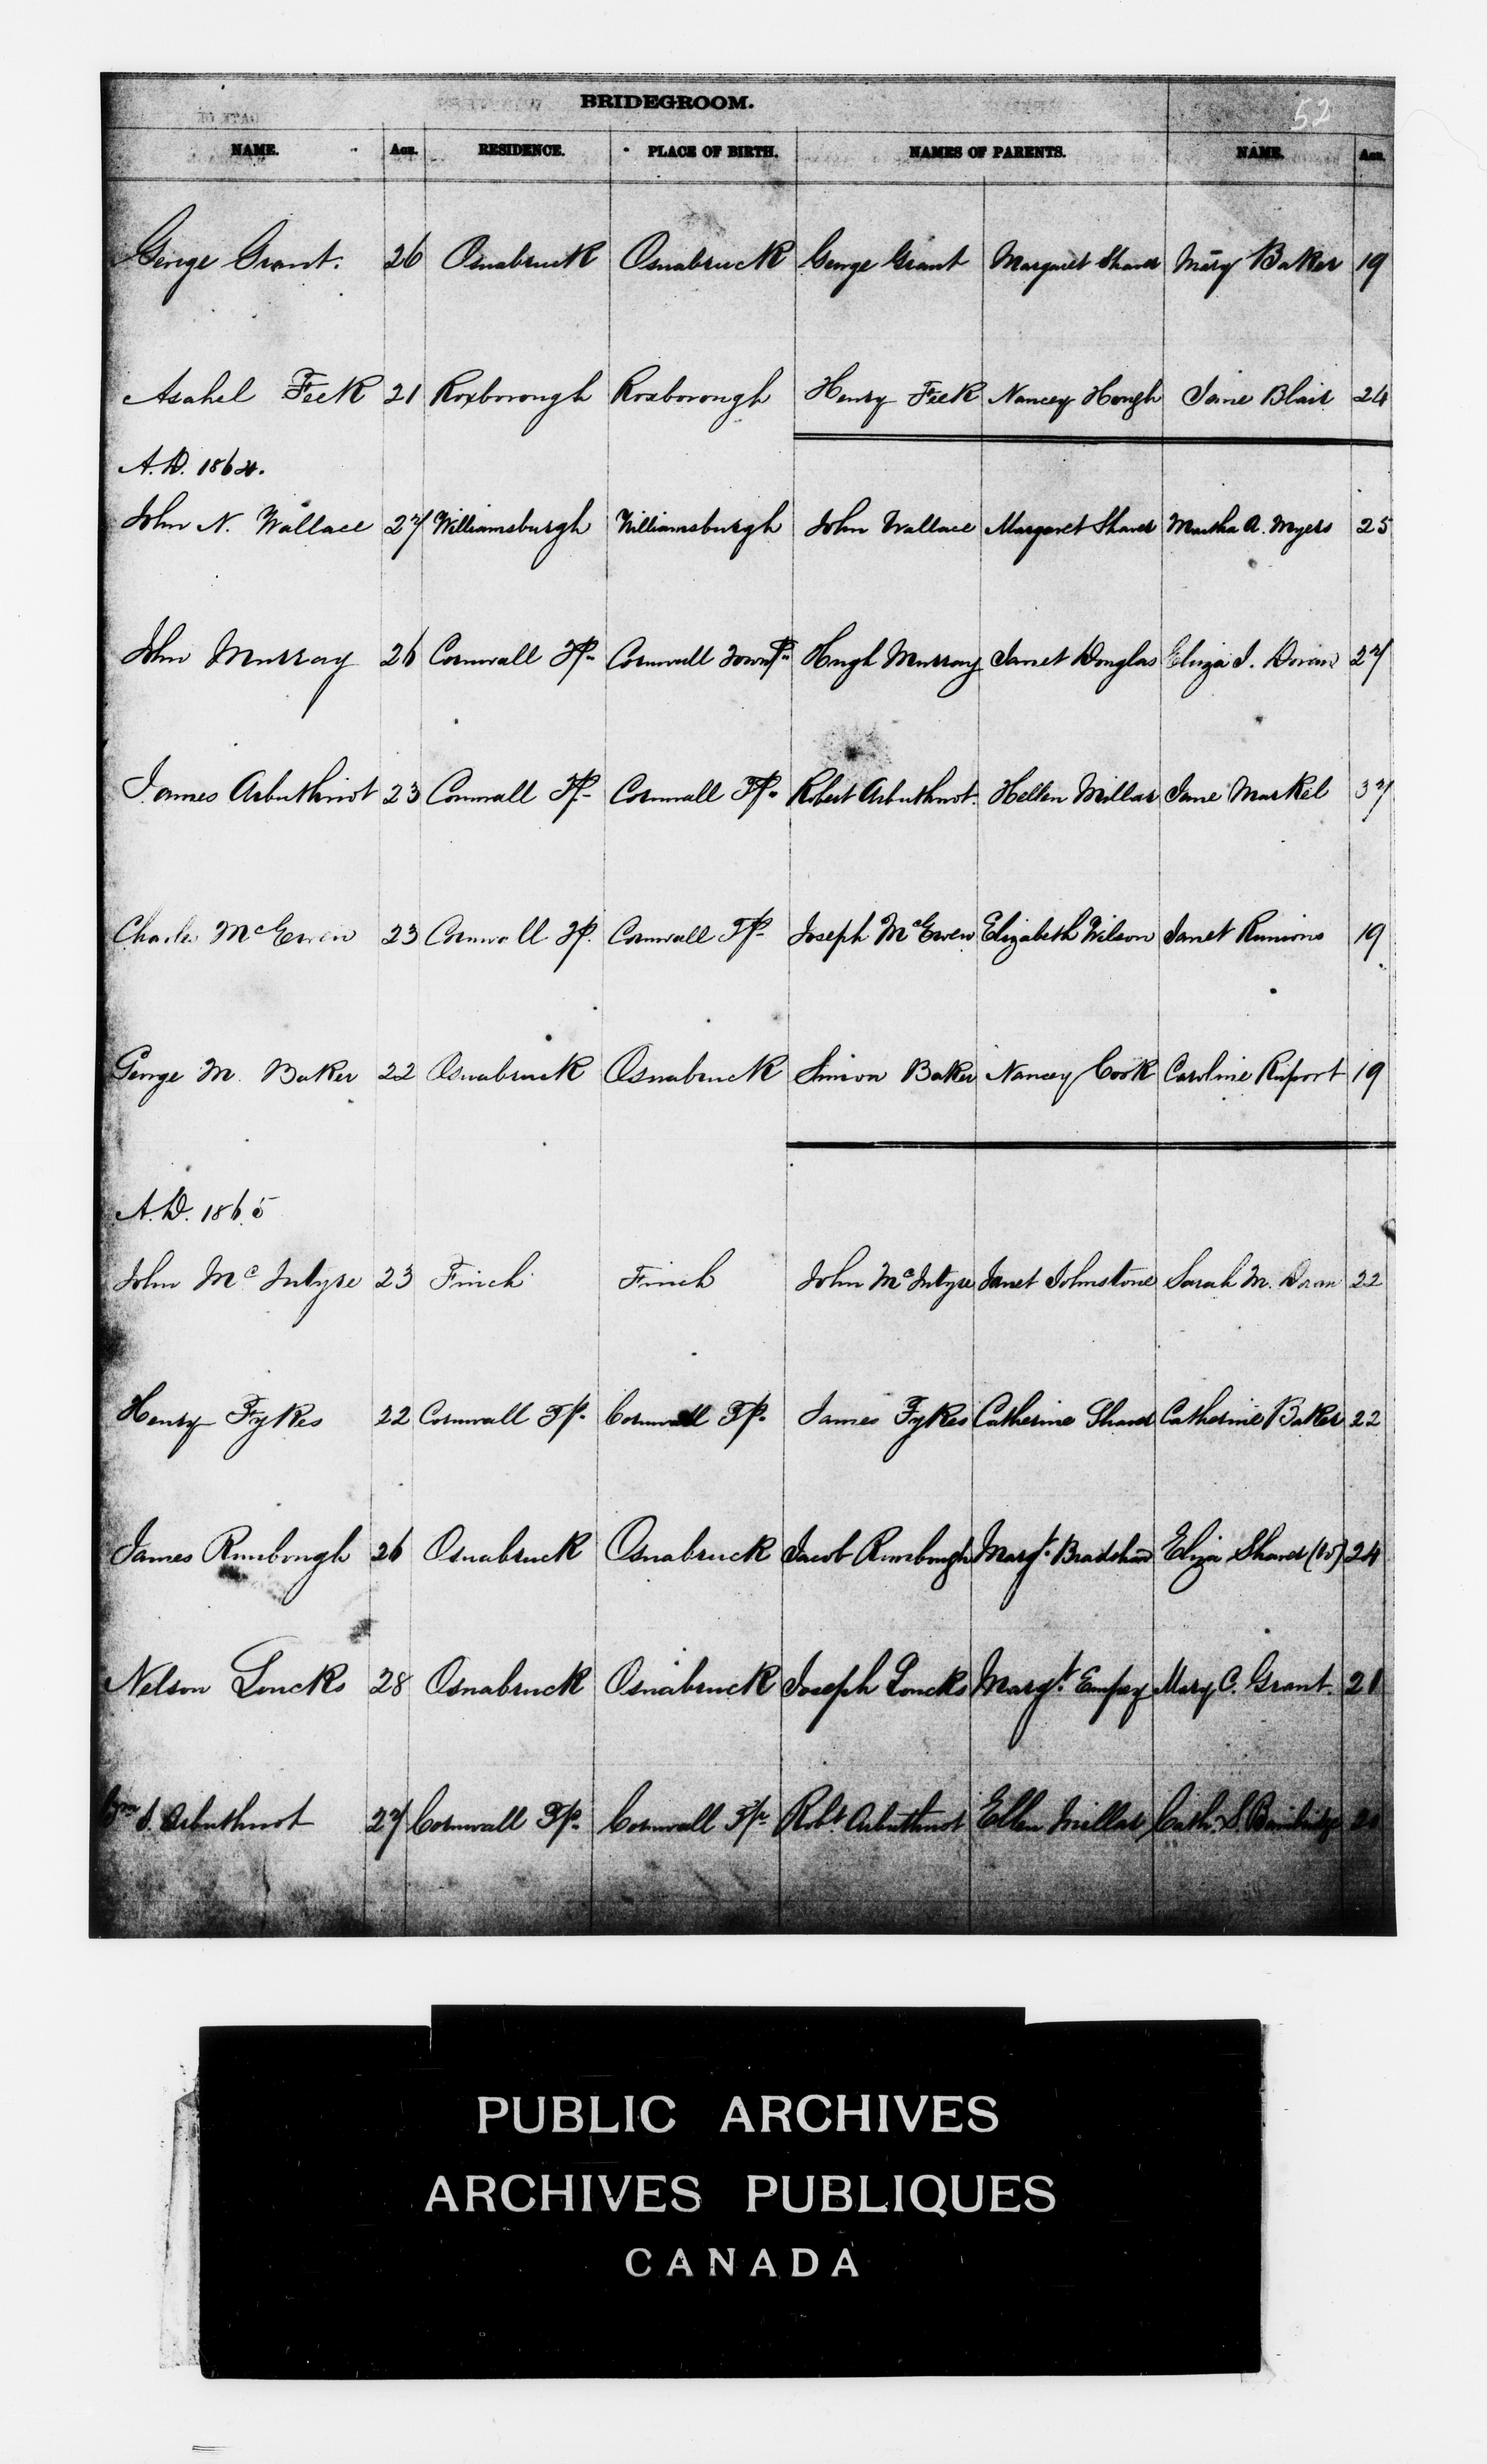 BRIDEGROOM.
52
NAME. AGE. RESIDENCE. PLACE OF BIRTH. NAMES OF PARENTS. NAME. AGE.
George Grant. 26 Osnabruck Osnabruck George Grant Margaret Shaver Mary Baker 19
Asahel Feek 21 Roxborough Roxborough Henry Feek Nancey Hough Jane Blair 24
A.D. 1864.
John N. Wallace 27 Williamsburgh Williamsburgh John Wallace Margaret Shaver Martha A. Myers 25
John Murray 26 Cornwall Tp. Cornwall Townp. Hugh Murray Janet Douglas Eliza J. Doran 27
James Arbuthnot 23 Cornwall Tp. Cornwall Tp. Robert Arbuthnot. Hellen Millar Jane Markel 37
Charles McEwen 23 Cornwall Tp. Cornwall Tp. Joseph McEwen Elizabeth Wilson Janet Runions 19
George M. Baker 22 Osnabruck Osnabruck Simion Baker Nancey Cook Caroline Ruport 19
A.D. 1865
John McIntyre 23 Finch Finch John McIntyre Janet Johnstone Sarah M. Doran 22
Henry Fykes 22 Cornwall Tp. Cornwall Tp. James Fykes Catherine Shaver Catherine Baker 22
James Rumbough 26 Osnabruck Osnabruck Jacob Rumbough Margt. Bradshaw Eliza Shaver (W) 24
Nelson Loucks 28 Osnabruck Osnabruck Joseph Loucks Margt. Empey Mary C. Grant. 21
Wm S. Arbuthnot 27 Cornwall Tp. Cornwall Tp. Robt. Arbuthnot Ellen Millar Cath. S. Bainbridge
PUBLIC ARCHIVES
ARCHIVES PUBLIQUES
CANADA